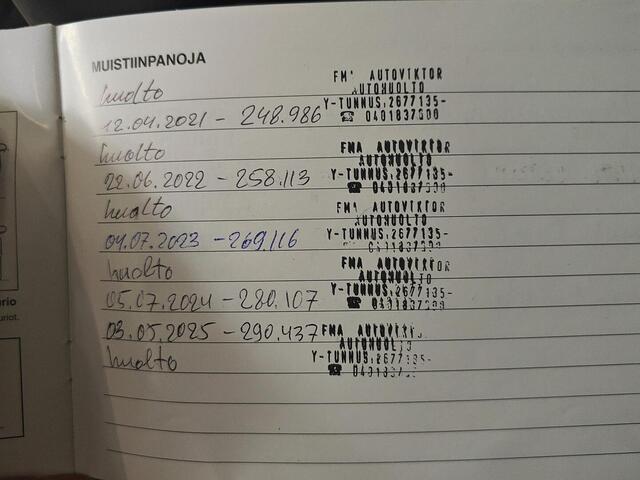 MUISTIINPANOJA
huolto FMA AUTOVIKTOR
AUTOHUOLTO
12.04.2021 - 248.986 Y-TUNNUS.2677135-
☎ 0401837000
huolto FMA AUTOVIKTOR
AUTOHUOLTO
22.06.2022 - 258.113 Y-TUNNUS.2677135-
☎ 0401837000
huolto FMA AUTOVIKTOR
AUTOHUOLTO
04.07.2023 - 269.116 Y-TUNNUS.2677135-
0401837000
huolto FMA AUTOVIKTOR
AUTOHUOLTO
05.07.2024 - 280.107 Y-TUNNUS.2677135-
☎ 0401837000
03.05.2025 - 290.437 FMA AUTOVIKTOR
AUTOHUOLTO
huolto Y-TUNNUS.2677135-
☎ 0401837